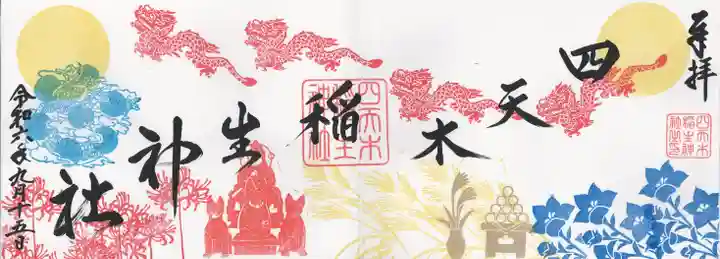 奉拝
四天木
稲生
神社
令和六年九月十五日
四天木
稲生
神社
四天木
稲生神
社之印